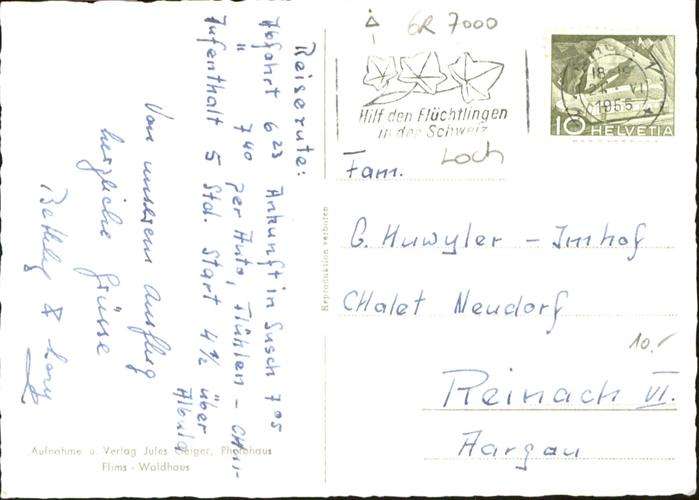 GR 7000
Hilf den Flüchtlingen
in der Schweiz
18
VI
1955
10 HELVETIA
Loch
Fam.
G. Huwyler - Imhof
CHalet Neudorf
Reinach VI.
Aargau
10.-
Reiseroute:
Abfahrt 6 23 Ankunft in Susch 7 05
" 7 40 per Auto, Flühlen -
Aufenthalt 5 Std. Start 4 1/2 über
Albula
Von unserem Ausflug
herzliche Grüsse
Reproduktion verboten
Aufnahme u. Verlag Jules Geiger, Photohaus
Flims - Waldhaus